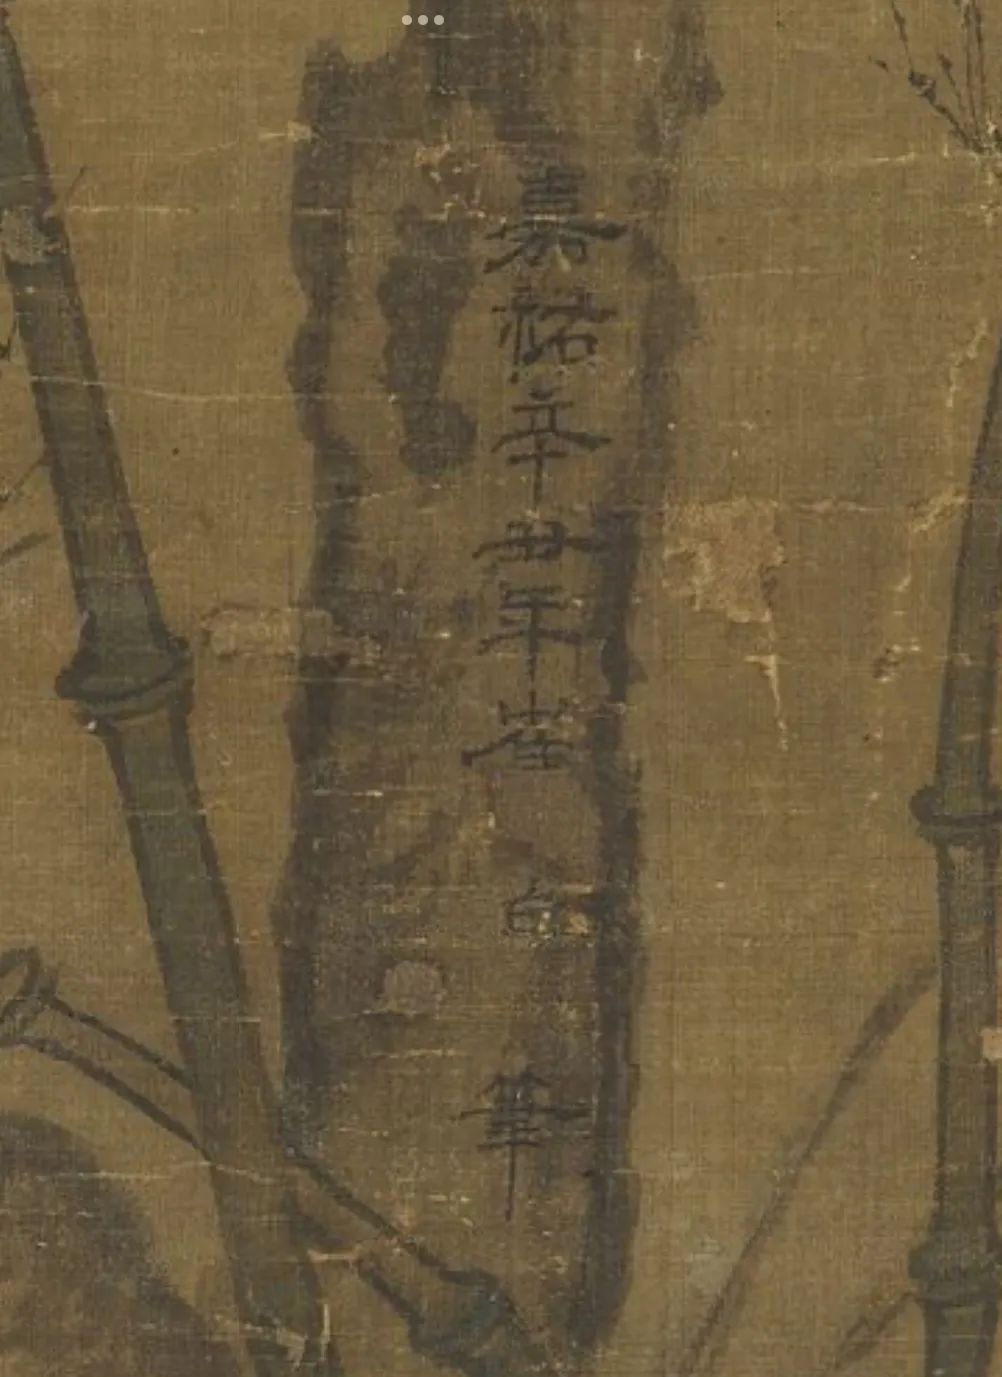 嘉祐辛丑年崔白筆